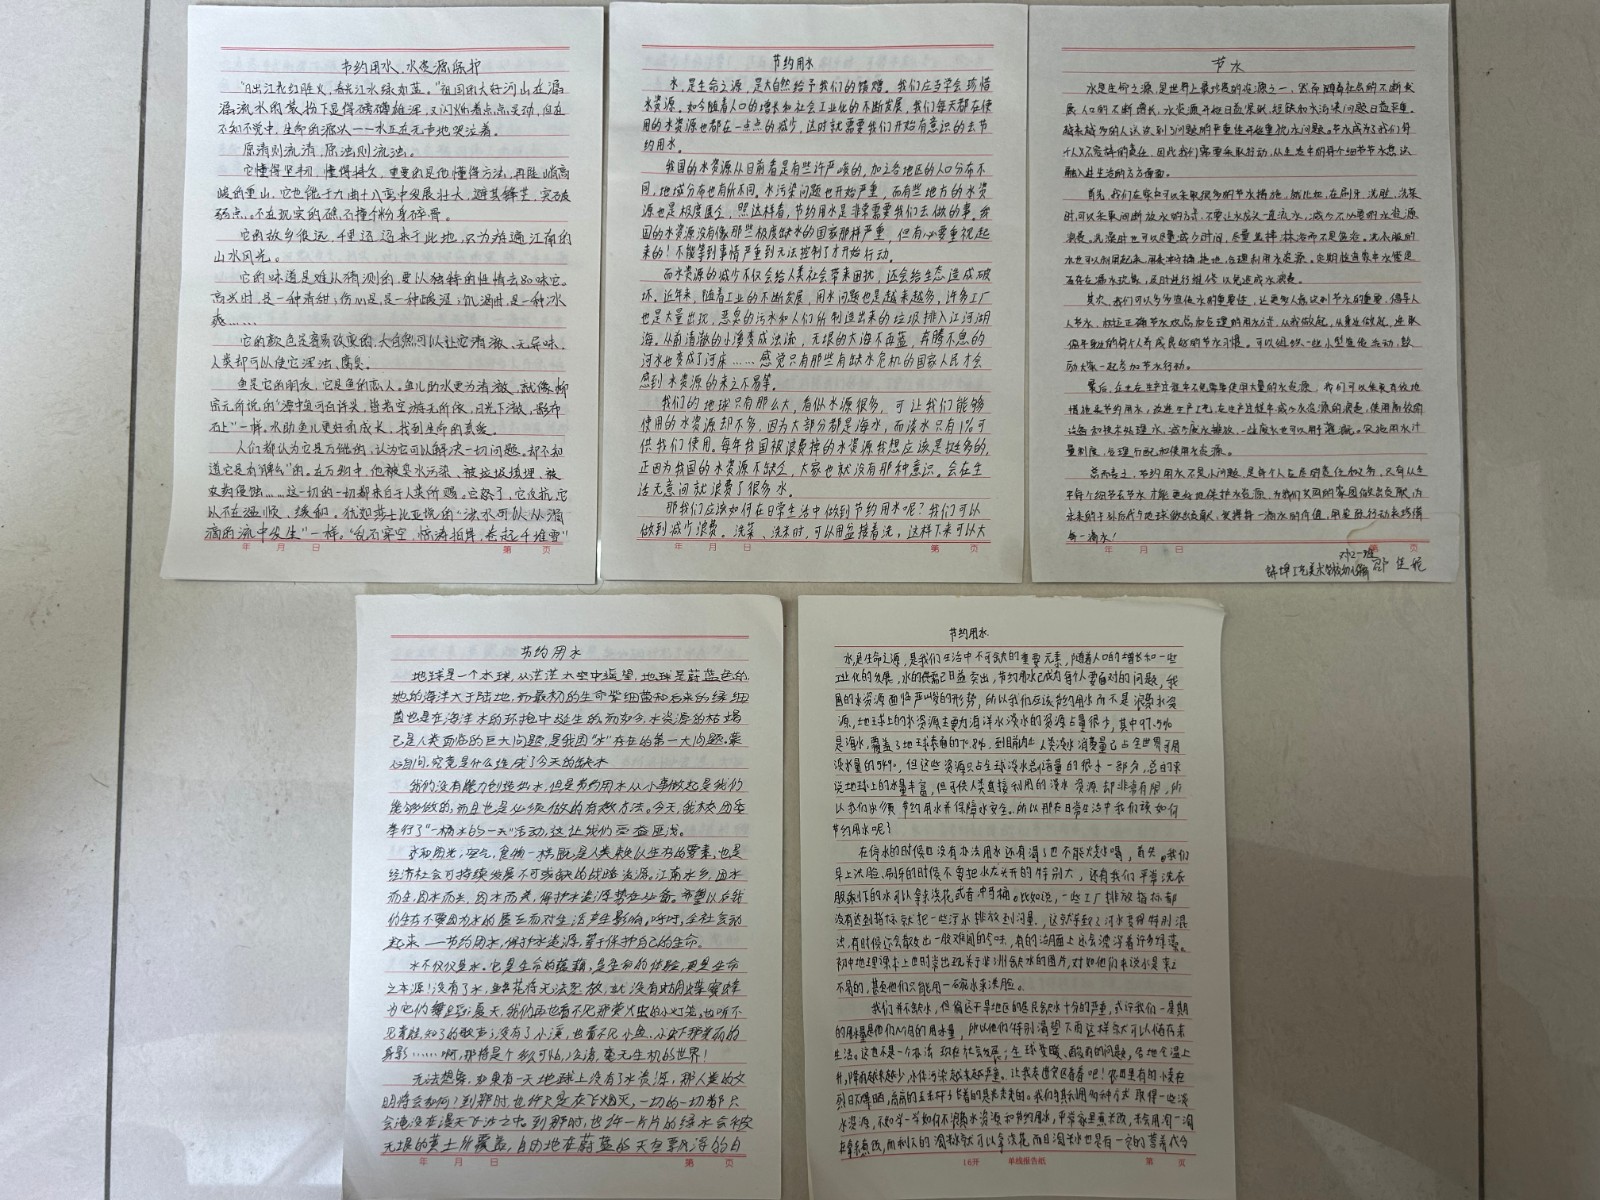 节约用水、水资源保护
"日出江花红胜火,春来江水绿如蓝。"祖国的大好河山在潺
潺流水的装扮下显得磅礴雄浑,又闪烁着点点灵动,但在
不知不觉中,生命的源头——水正在无声地哭泣着。
原清则流清,原浊则流浊。
它懂得坚韧,懂得持久,更重要的是他懂得方法,再陡峭高
峻的重山,它也能于九曲十八弯中发展壮大,避其锋芒,突破
弱点,不在现实的礁石撞个粉身碎骨。
它的故乡很远,千里迢迢来于此地,只为
山水风光。
它的味道是难以猜测的,要以独特的性情去品味它。
高兴时,是一种清甜;伤心是,是一种酸涩;饥渴时,是一种冰
爽……
它的颜色是容易改变的,大自然可以让它清澈、无异味,
人类却可以使它浑浊、腐臭。
鱼是它的朋友,它是鱼的恋人。鱼儿助水更为清澈,就像柳
宗元所说的"潭中鱼可百许头,皆若空游无所依,日光下澈,影布
石上"一样。水助鱼儿更好的成长,找到生命的真爱。
人们都认为它是万能的,认为它可以解决一切问题。却不知
道它是有脾气的。在万物中,他被臭水污染、被垃圾填埋、被
农药侵蚀……这一切的一切都来自于人类所赐。它怒了,它反抗,它
从不在温顺、缓和,犹如莎士比亚说的"洪水可以从涓
滴的流中发生"一样。"乱石穿空,惊涛拍岸,卷起千堆雪"
年 月 日 第 页
节约用水
水,是生命之源,是大自然给予我们的馈赠。我们应当学会珍惜
水资源。如今随着人口的增长和社会工业化的不断发展,我们每天都在使
用的水资源也都在一点点的减少,这时就需要我们开始有意识的去节
约用水。
我国的水资源从目前看是有些许严峻的,加之各地区的人口分布不
同,地域分布也有所不同。水污染问题也开始严重,而有些地方的水资
源也是极度匮乏,照这样看,节约用水是非常需要我们去做的事。我
国的水资源没有像那些极度缺水的国家那样严重,但有必要重视起
来的!不能等到事情严重到无法控制了才开始行动。
而水资源的减少不仅会给人类社会带来困扰,还会给生态造成破
坏。近年来,随着工业的不断发展,用水问题也是越来越多,许多工厂
也是大量出现,恶臭的污水和人们所制造出来的垃圾排入江河湖
海。从前清澈的小溪变成浊流,无垠的大海不再蓝,奔腾不息的
河水也变成了河床……感觉只有那些有缺水危机的国家人民才会
感到水资源的来之不易等。
我们的地球只有那么大,看似水源很多,可让我们能够
使用的水资源却不多,因为大部分都是海水,而淡水只有1%可
供我们使用。每年我国被浪费掉的水资源我想应该是挺多的,
正因为我国的水资源不缺乏,大家也就没有那种意识。会在生
活无意间就浪费了很多水。
那我们应该如何在日常生活中做到节约用水呢?我们可以
做到减少浪费。洗菜、洗米时,可以用盆接着洗,这样下来可以大
年 月 日 第 页
节水
水是生命之源,是世界上最珍贵的资源之一,然而随着社会的不断发
展,人口的不断增长,水资源开始日益紧缺,短缺和水污染问题日益严重。
越来越多的人认识到了问题的严重性开始重视水问题。节水成为了我们每
个人义不容辞的责任,因此我们需要采取行动,从生活中的每个细节节水想法
融入进生活的方方面面。
首先,我们在家中可以采取很多的节水措施,就比如,在刷牙、洗脸、洗菜
时,可以采取间断放水的方式,不要让水龙头一直流水,减少不必要的水资源
浪费。洗澡时也可以尽量减少时间,尽量选择淋浴而不是盆浴。洗衣服的
水也可以利用起来,用来冲拖拖地,合理利用水资源。定期检查家中水管是
否存在漏水现象,及时进行维修以免造成水浪费。
其次,我们可以多多宣传水的重要性,让更多人意识到节水的重要,倡导人
人节水,树立正确节水观念和合理的用水方式,从我做起,从身边做起,逐渐
使身边的每个人养成良好的节水习惯。可以组织一些小型宣传活动,鼓
动大家一起参加节水行动。
最后,企业在生产过程中不免需要使用大量的水资源,我们可以采取有效地
措施来节约用水,改进生产工艺,在生产过程中减少水资源的浪费,使用高效的
设备和技术处理水,减少废水排放,一些废水也可以用于灌溉。实施用水计
量制度,合理分配和使用水资源。
总而言之,节约用水不是小问题,是每个人应尽的责任和义务,只有从生
平每个细节去节水才能更好地保护水资源,为我们共同的家园做出贡献,为
未来的子孙后代与地球做出贡献,觉得每一滴水的价值,用实际行动来珍惜
每一滴水!
年 月 日 第 页
蚌埠工艺美术学校幼儿
节约用水
地球是一个水球,从茫茫太空中遥望,地球是蔚蓝色的
她的海洋大于陆地,而最初的生命紫细菌和后来的绿细
菌也是在海洋水的环抱中诞生的,而如今,水资源的枯竭
已是人类面临的巨大问题,是我国"水"存在的第一大问题。蓦
心自问,究竟是什么造成了今天的缺水
我们没有能力创造出水,但是节约用水从小事做起是我们
能够做的,而且也是必须做的有效方法。今天,我校团委
举行了"一桶水的一天"活动,这让我们受益匪浅。
水和阳光,空气,食物一样,既是人类赖以生存的要素,也是
经济社会可持续发展不可或缺的战略资源。江南水乡,因水
而生,因水而兴,因水而美,保护水资源势在必备。希望以后我
们生存不要因为水的匮乏而对生活产生影响。呼吁,全社会动
起来——节约用水,保护水资源,等于保护自己的生命。
水不仅仅是水。它是生命的蕴藉,是生命的体验,更是生命
之本源!没有了水,鲜花将无法怒放,也没有蝴蝶蜜蜂
为它们舞蹈;夏天,我们再也看不见那萤火虫的小灯笼,也听不
见青蛙,知了的歌声;没有了小溪,也看不见小鱼,小虾那美丽的
身影……啊,那将是个多么可怕,冷清,毫无生机的世界!
无法想象,如果有一天地球上没有了水资源,那人类的文
明将会如何?到那时,也许只是灰飞烟灭,一切的一切都只
会淹没在漫天飞沙之中。到那时,也许一片片的绿水会被
无垠的黄土所覆盖,自由地在蔚蓝的天空飘浮的白
年 月 日 第 页
节约用水
水是生命之源,是我们生活中不可或缺的重要元素,随着人口的增长和一些
工业化的发展,水的供需已日益突出,节约用水已成为每个人要面对的问题,我
国的水资源面临严峻的形势,所以我们应该节约用水而不是浪费水资
源,地球上的水资源主要为海洋水,淡水的资源占量很少,其中97.5%
是海水,覆盖了地球表面的70.8%,到目前为止人类淡水消费量已占全世界可用
淡水量的54%,但这些资源只占全球淡水总储量的很小一部分,总的来
说地球上的水量丰富,但可供人类直接利用的淡水资源却非常有限,所
以我们必须节约用水并保障水安全。所以那在日常生活中我们该如何
节约用水呢?
在停水的时候也没有办法用水还有渴了也不能烧水喝,首先,我们
早上洗脸,刷牙的时候不要把水龙头开的特别大,还有我们平常洗衣
服剩下的水可以拿来浇花或者冲马桶。比如说,一些工厂排放指标都
没有达到指标就把一些污水排放到河里,这就导致了河水变得特别混
浊,有时候还会散发出一股难闻的气味,有的湖面上还会漂浮着许多绿藻。
初中地理课本上也时常出现关于非洲缺水的图片,对如他们来说水是来之
不易的,甚至他们只能用一碗水来洗脸。
我们并不缺水,但偏远干旱地区的居民缺水十分的严重,或许我们一星期
的用水量是他们几个月的用水量,所以他们特别渴望下雨这样就可以储存来
生活。这也不是一个办法,现在社会发展;全球变暖、酸雨的问题,各地气温上
升,降雨越来越少,水体污染越来越严重。
水资源,不如学一学如何不浪费水资源和节约用水,
年 月 日
16开 单线报告纸 第 页